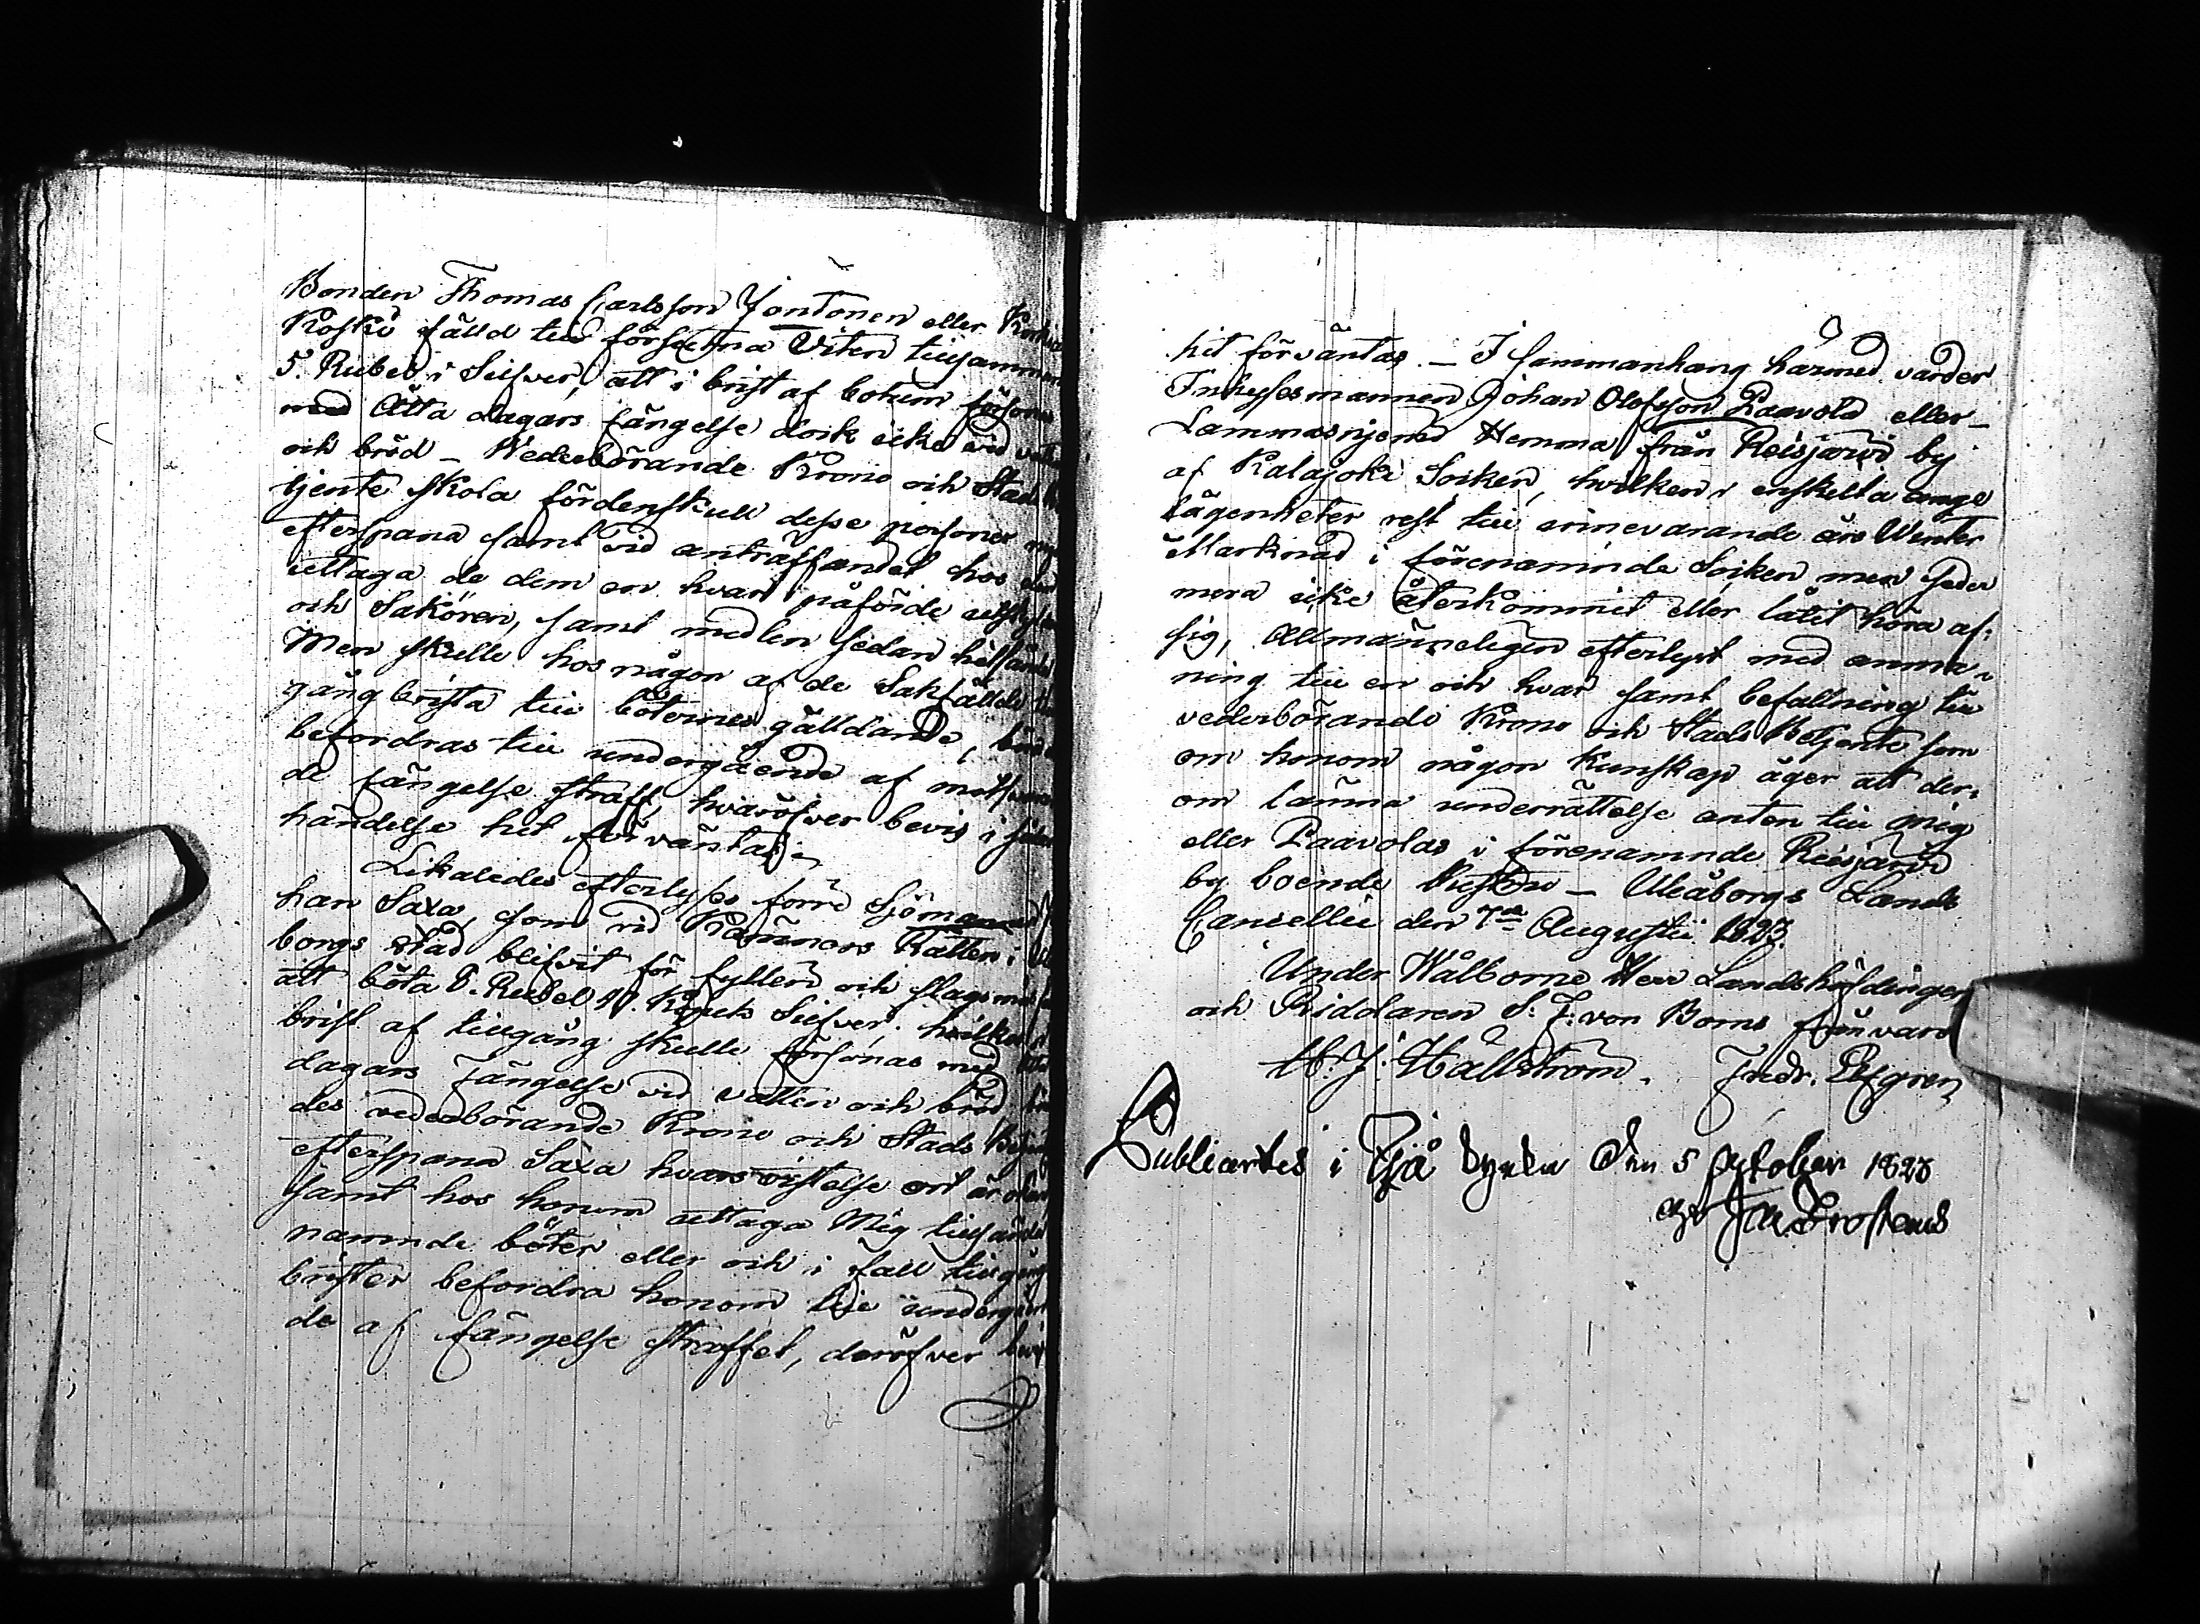 Bonden Thomas Carlsson Jontonen eller
Koski fälld till försutna Viten tillsammen
5. Rubel i Silfver, att i brist af botum försona
med Åtta dagars fängelse dock icke vid vatten
och bröd _ Wederbörande Krono och Stads
tjente skola fördenskull desse personer
efterspana samt vid anträffandet hos dem
uttaga de dem en hvar påförde
och Saköron, samt medlen sedan hitsända
Men skulle hos någon af de Sakfällde till
gång brista till böternes gälldande, böra
befordras till undergående af motsvaran
de fängelse straff, hvaröfver bevis i sådan
händelse hit förväntas._
Likaledes efterlyses förre Sjömannen
han Saxa, som vid Kämnärs Rätten i Uleå
borgs stad blifvit för fylleri och slagsmål
att böta 8. Rubel Kopek Silfver, hvilka
brist af tillgång skulle försonas med
dagars Fängelse vid vatten och bröd
des vederbörande Krono och Stads Betjente
efterspana Saxa hvars vistelse ort är okänd
samt hos honom uttaga Mig tillsända
nämnde böter eller och i fall tillgång
brister befordra honom till undergåen
de af fängelse straffet, deröfver bevis
hit förväntas. _ I sammanhang härmed varder
Inhysesmannen Johan Olofsson Paavola eller
Hemma från Reisjärvi by
af Kalajoki Socken, hvilken i enskilta ange
lägenheter rest till innevarande års Winter
Marknad i förenämnde Socken men seder
mera icke återkommit eller låtit höra af:
sig, Allmänneligen efterlyst med anma-
ning till en och hvar samt befallning till
vederbörande Krono och Stads Betjente som
om honom någon Kunskap äger att der:
om lämna underrättelse anten till Mig
eller Paavolas i förenämnde Reisjärvi
by boende Hustru _ Uleåborgs Lands
Cancellie den 7de Augusti 1827.
Under Wälborne Herr Landshöfdingen
och Riddarens S. F. von Borns frånvaro
M. J. Hällström. Fredr. Elfgren
Publicerades i Pyrkö kyrka den 5 October 1828